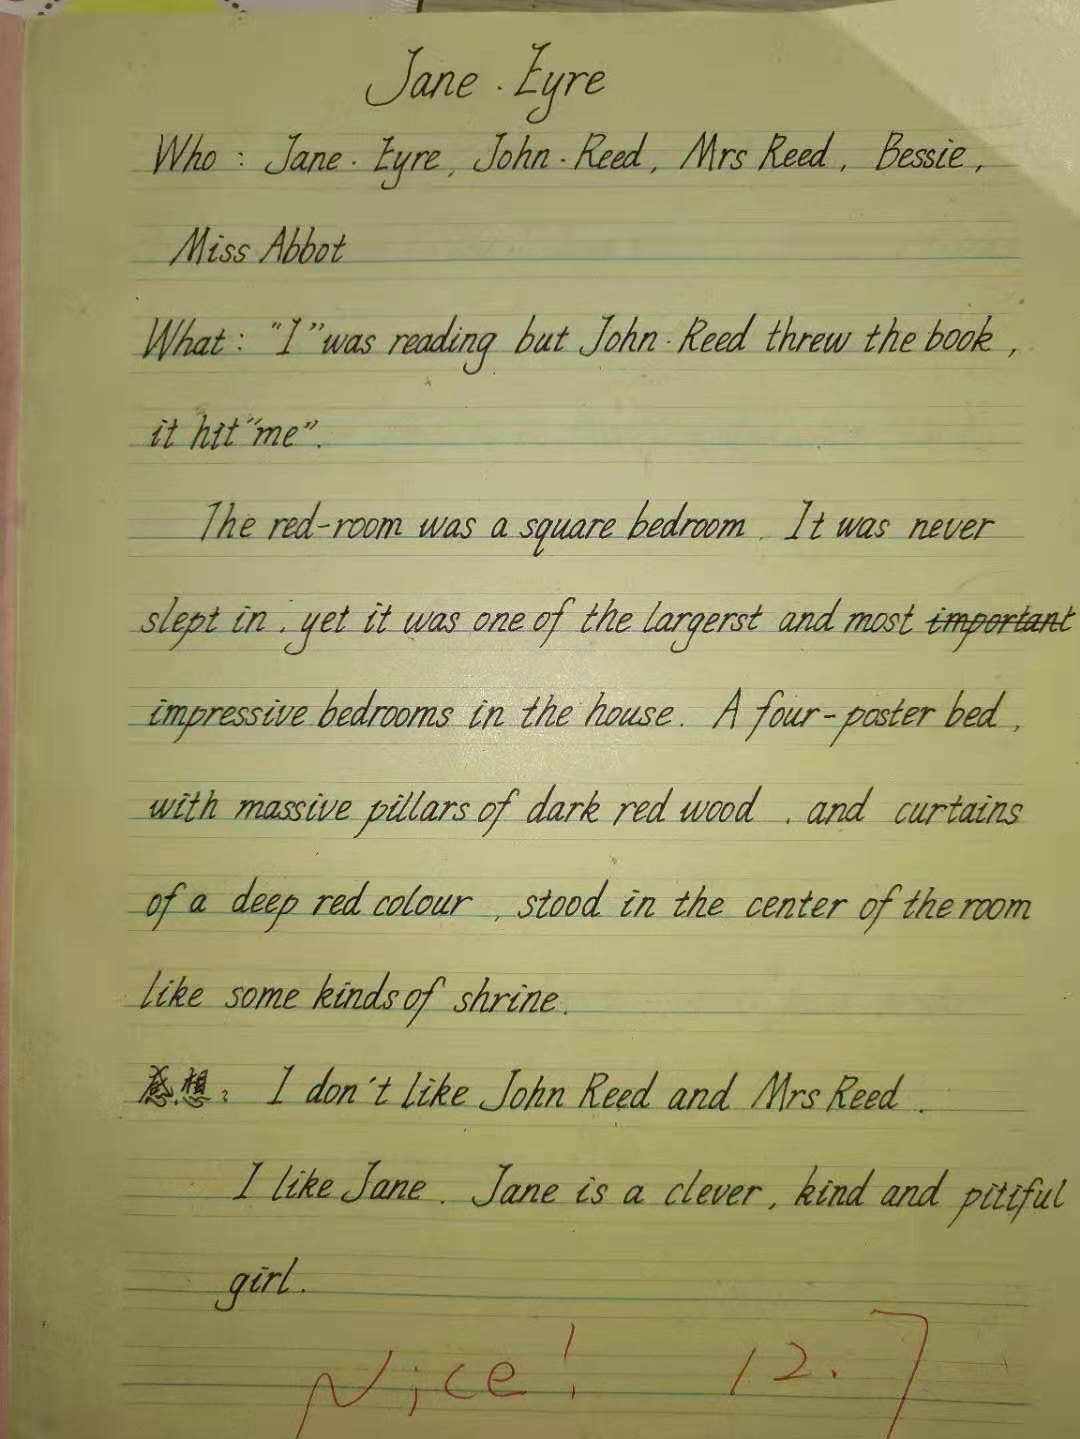 Jane · Eyre
Who : Jane · Eyre, John · Reed, Mrs Reed, Bessie,
Miss Abbot
What : "I" was reading but John · Reed threw the book,
it hit "me".
The red-room was a square bedroom. It was never
slept in, yet it was one of the largerst and most important
impressive bedrooms in the house. A four-poster bed,
with massive pillars of dark red wood, and curtains
of a deep red colour, stood in the center of the room
like some kinds of shrine.
感想: I don't like John Reed and Mrs Reed.
I like Jane. Jane is a clever, kind and pitiful
girl.
Nice! 12.7